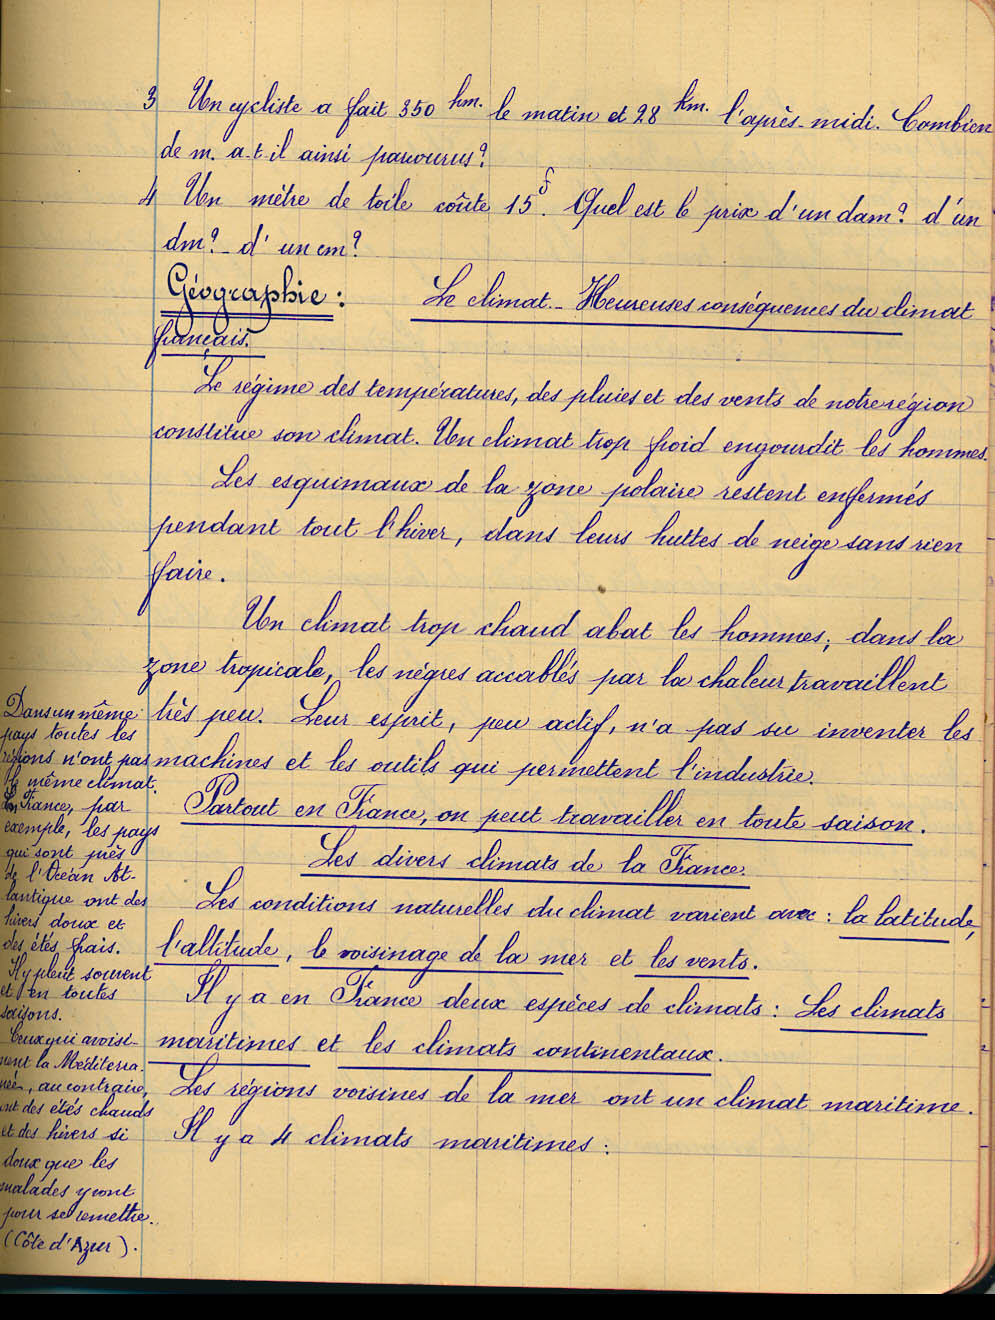 3 Un cycliste a fait 350 hm. le matin et 28 km. l'après-midi. Combien
de m. a-t-il ainsi parcourus?
4 Un mètre de toile coûte 15 f. Quel est le prix d'un dam? d'un
dm? - d'un cm?
Géographie : Le climat - Heureuses conséquences du climat
français.
Le régime des températures, des pluies et des vents de notre région
constitue son climat. Un climat trop froid engourdit les hommes.
Les esquimaux de la zone polaire restent enfermés
pendant tout l'hiver, dans leurs huttes de neige sans rien
faire.
Un climat trop chaud abat les hommes; dans la
zone tropicale, les nègres accablés par la chaleur travaillent
très peu. Leur esprit, peu actif, n'a pas su inventer les
machines et les outils qui permettent l'industrie.
Partout en France, on peut travailler en toute saison.
Les divers climats de la France.
Les conditions naturelles du climat varient avec : la latitude,
l'altitude, le voisinage de la mer et les vents.
Il y a en France deux espèces de climats : Les climats
maritimes et les climats continentaux.
Les régions voisines de la mer ont un climat maritime.
Il y a 4 climats maritimes :
Dans un même
pays toutes les
régions n'ont pas
le même climat.
En France, par
exemple, les pays
qui sont près
de l'Océan At-
lantique ont des
hivers doux et
des étés frais.
Il y pleut souvent
et en toutes
saisons.
Ceux qui avoisi-
nent la Méditerra-
née, au contraire,
ont des étés chauds
et des hivers si
doux que les
malades y vont
pour se remettre.
(Côte d'Azur).